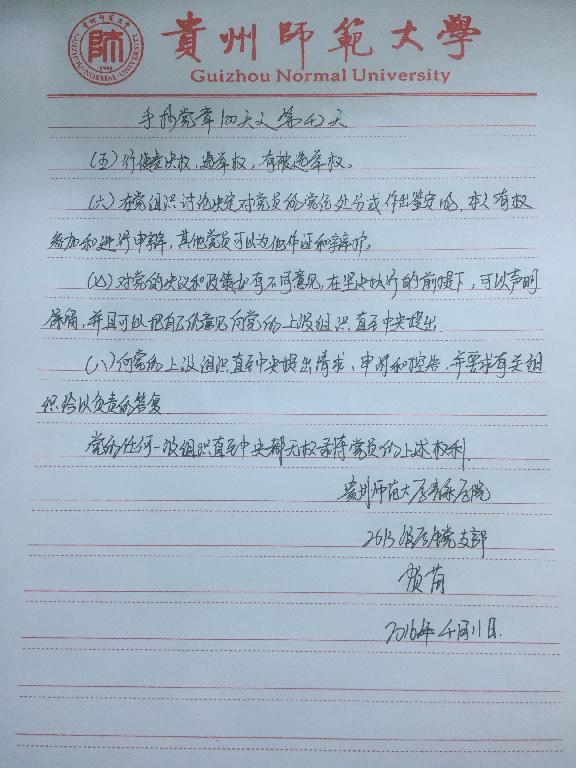 貴州師範大學
Guizhou Normal University
GUIZHOU NORMAL UNIVERSITY
師
1941
手抄党章100天之第42天
(五)行使表决权、选举权,有被选举权。
(六)在党组织讨论决定对党员的党纪处分或作出鉴定时,本人有权
参加和进行申辩,其他党员可以为他作证和辩护。
(七)对党的决议和政策如有不同意见,在坚决执行的前提下,可以声明
保留,并且可以把自己的意见向党的上级组织直至中央提出
(八)向党的上级组织直至中央提出请求、申诉和控告,并要求有关组
织给以负责的答复
党的任何一级组织直至中央都无权剥夺党员的上述权利
贵州师范大学音乐学院
2013级学生党支部
2016年4月11日.